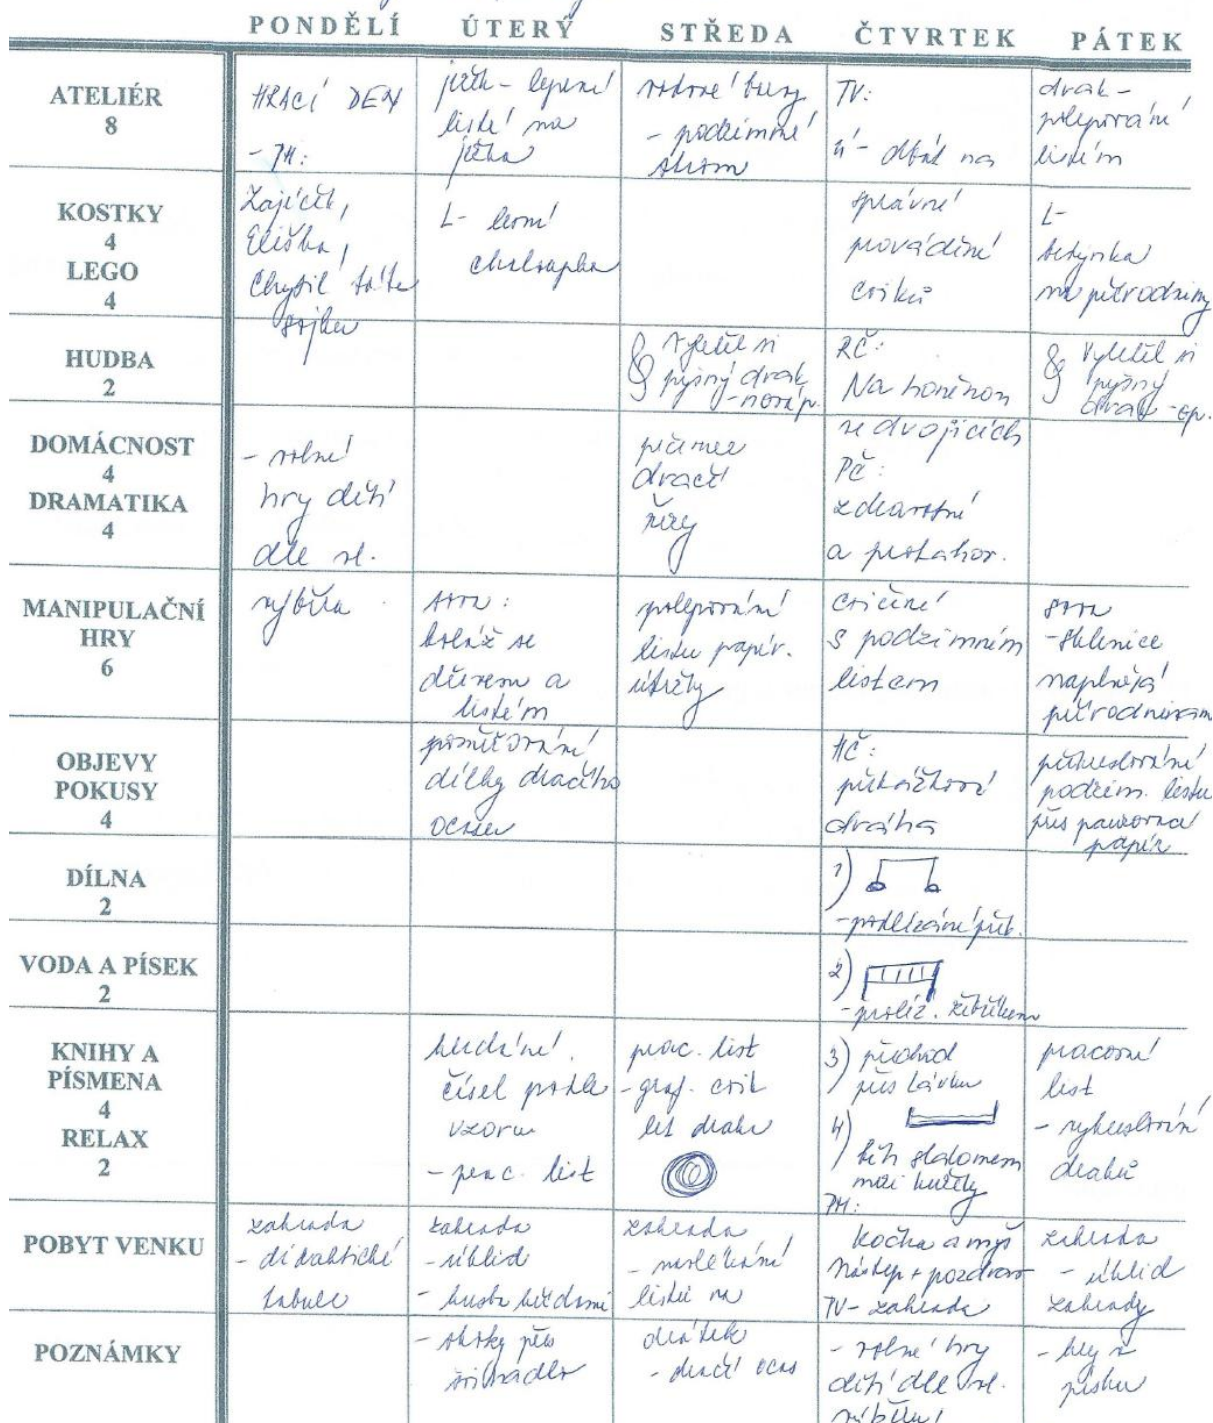 PONDĚLÍ ÚTERÝ STŘEDA ČTVRTEK PÁTEK
ATELIÉR
8
HRACÍ DEN
- PH:
ježek - lepení
listí na
ježka
vodové barvy
- podzimní
strom
TV:
Ú - dbát na
drak -
polepování
listím
KOSTKY
4
LEGO
4
Zajíček,
Eliška,
Chytil táta
sojku
L- lesní
chaloupka
správné
provádění
cviků
L-
na přírodniny
HUDBA
2
Vyletěl si
pyšný drak
RČ:
Na honěnou
Vyletěl si
pyšný
drak - op.
DOMÁCNOST
4
DRAMATIKA
4
- volné
hry dětí
dle vl.
písmee
dračí
ve dvojicích
PČ:
zdravotní
a protahov.
MANIPULAČNÍ
HRY
6
výběru
koláž se
dřevem a
listím
polepování
listu papír.
útržky
cvičení
s podzimním
listem
- sklenice
naplnějá
přírodninam
OBJEVY
POKUSY
4
poměřování
délky dračího
ocasu
HČ:
překážková
dráha
překreslování
podzim. listu
přes pauzovací
papír
DÍLNA
2
1)
- podlézání přek.
VODA A PÍSEK
2
2)
- proléz. žebříkem
KNIHY A
PÍSMENA
4
RELAX
2
hledání
čísel podle
vzoru
- prac. list
prac. list
- graf. cvik
let draka
3) přechod
přes lávku
4)
běh slalomem
mezi kužely
PH:
pracovní
list
- vykreslování
draků
POBYT VENKU
zahrada
- didaktické
tabule
zahrada
- úklid
zahrada
- navlékání
listů na
Kočka a myš
Nástup + pozdrav
TV - zahrada
zahrada
- úklid
zahrady
POZNÁMKY
- skoky přes
švihadlo
drátek
- dračí ocas
- volné hry
dětí dle vl.
výběru
- hry v
písku